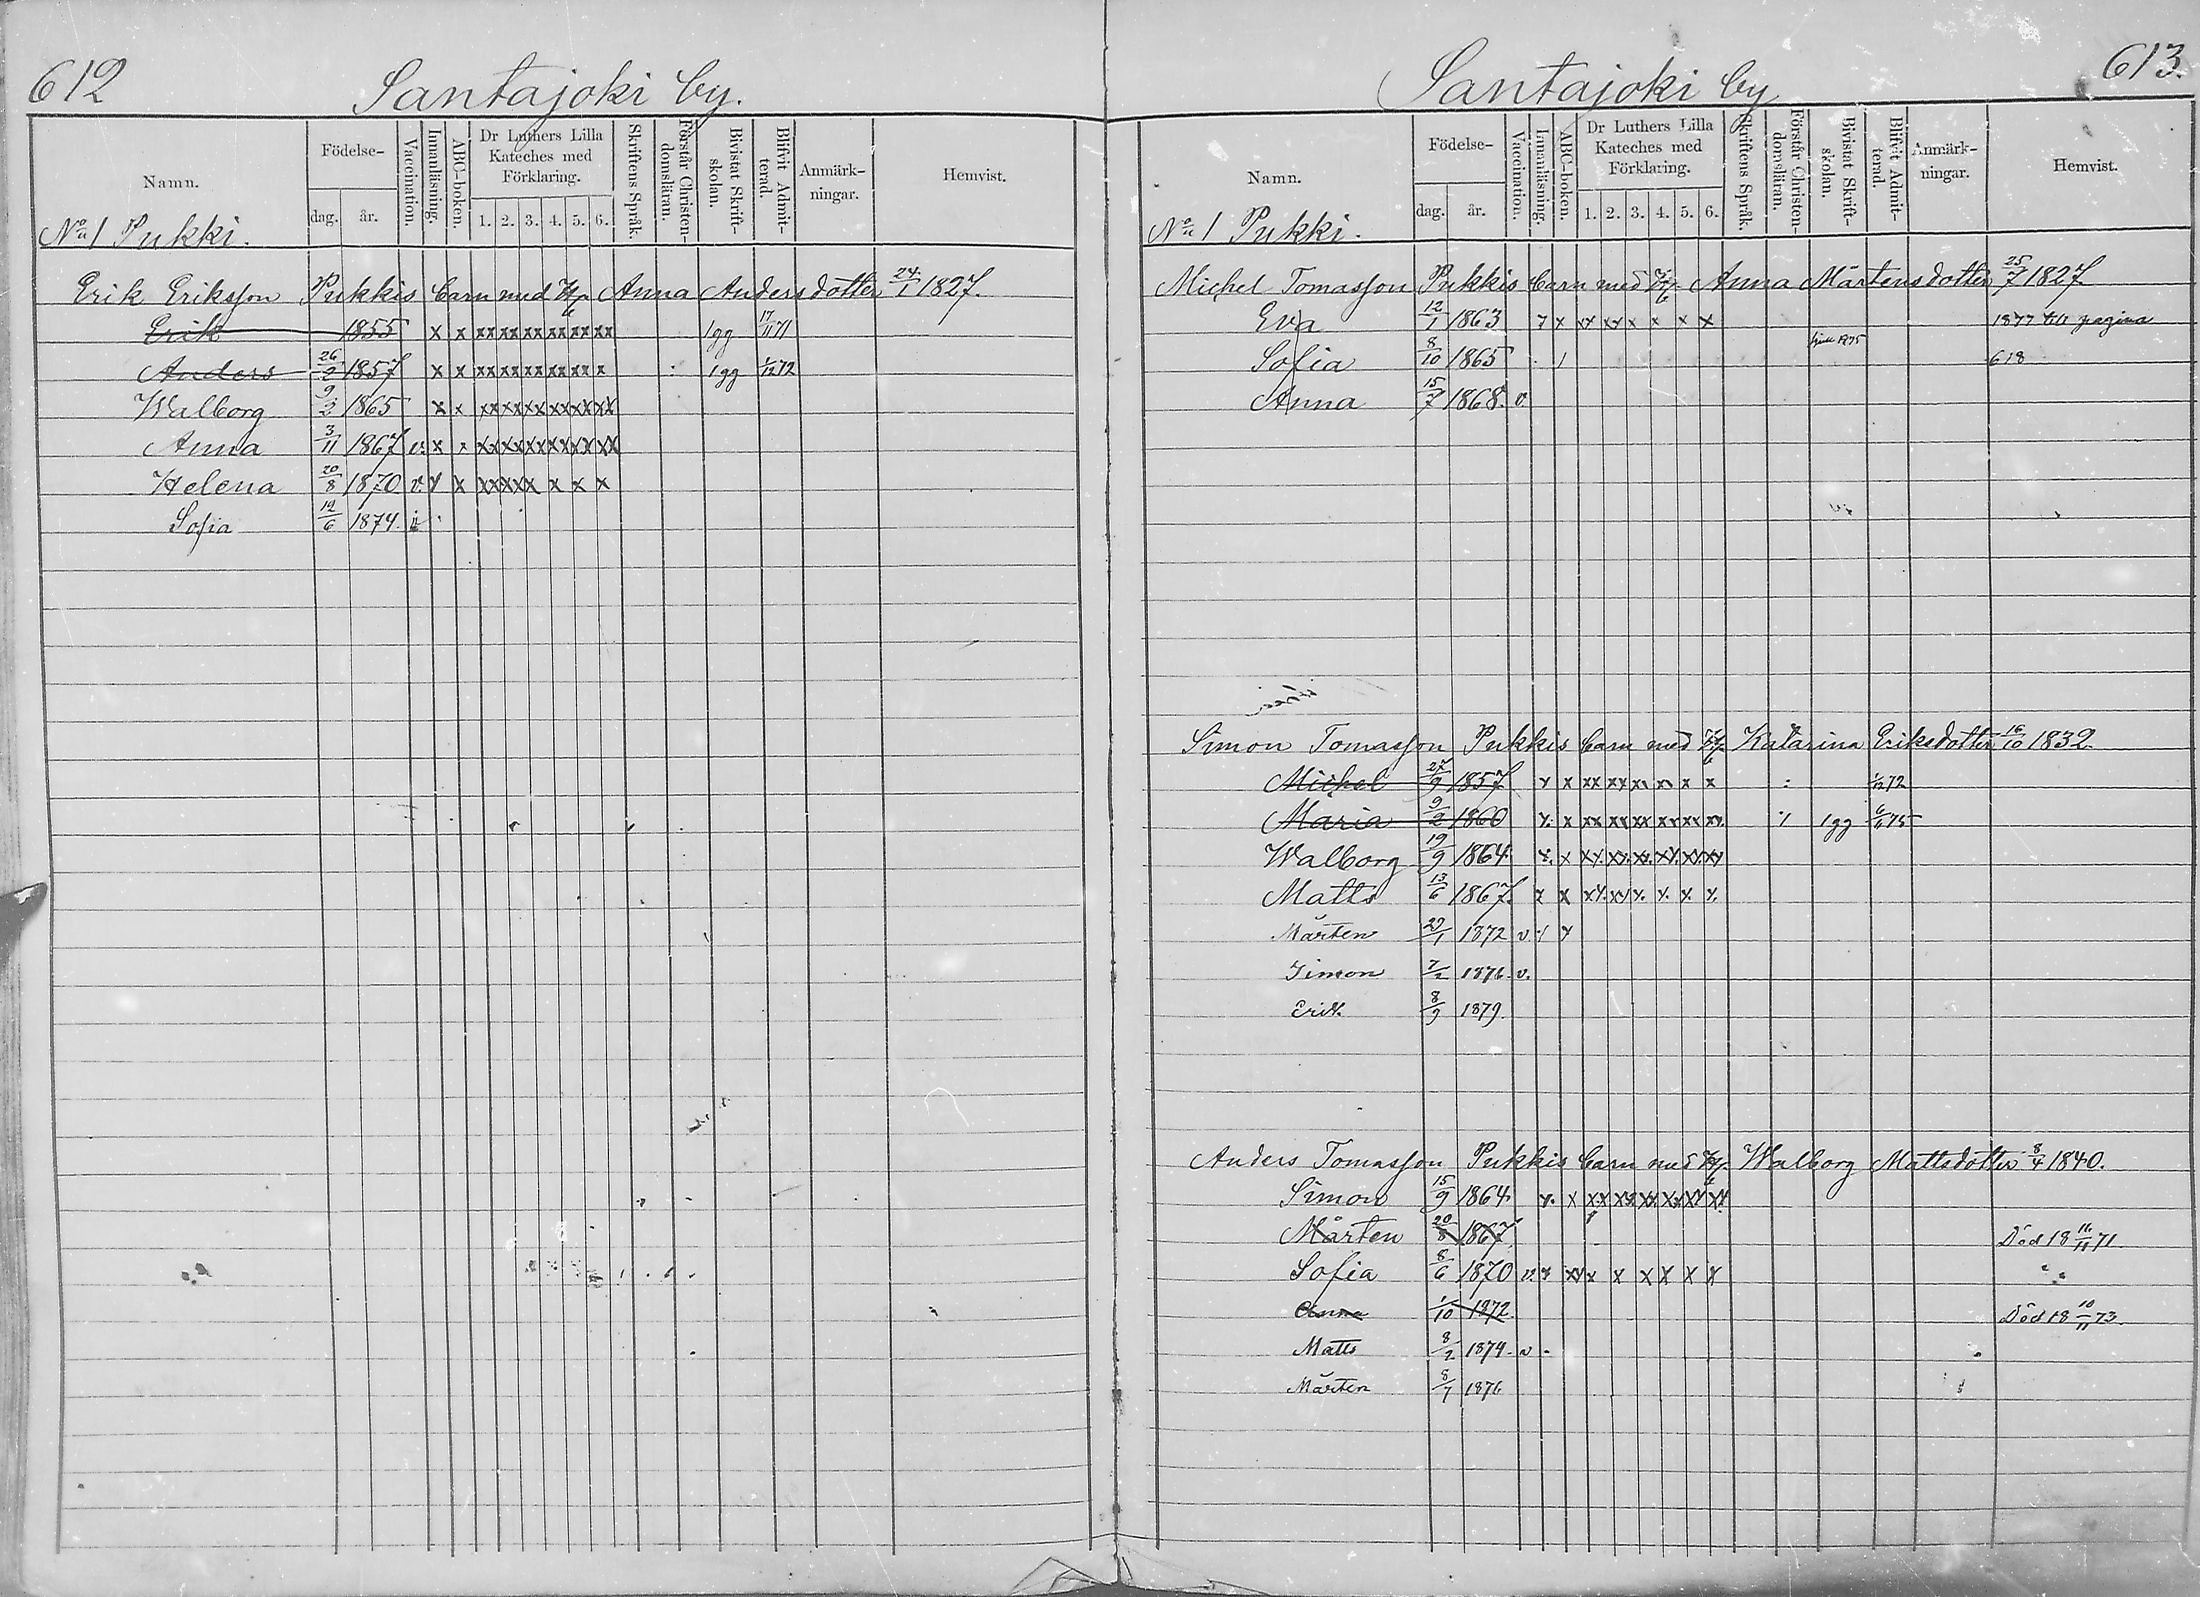 612
Santajoki by.
Namn.
Födelse-
dag.
år.
Vaccination.
Innanläsning.
ABC-boken.
Dr Luthers Lilla Kateches med Förklaring.
1. 2. 3. 4. 5. 6.
Skriftens Språk.
Förstår Christen-domsläran.
Bivistat Skrift-skolan.
Blifvit Admit-terad.
Anmärk-ningar.
Hemvist.
No 1 Pukki.
Erik Eriksson Pukkis barn med Anna Andersdotter 24/1 1827.
Erik 1855 x x xx xx xx xx xx xx 1gg 17/11 71
Anders 26/2 1857 x x xx xx xx xx xx x : 1gg 1/12 72
Walborg 9/2 1865 x x xx xx xx xx xx xx
Anna 3/11 1867 v. x x xx xx xx xx xx xx
Helena 20/8 1870 v. x x xx xx x x x x
Sofia 12/6 1874
613.
Santajoki by
Namn.
Födelse-
dag.
år.
Vaccination.
Innanläsning.
ABC-boken.
Dr Luthers Lilla Kateches med Förklaring.
1. 2. 3. 4. 5. 6.
Skriftens Språk.
Förstår Christen-domsläran.
Bivistat Skrift-skolan.
Blifvit Admit-terad.
Anmärk-ningar.
Hemvist.
No 1 Pukki.
Michel Tomasson Pukkis barn med Anna Mårtensdotter 25/7 1827
Eva 12/1 1863 x x xx xx x x x x 1877 till pagina
Sofia 8/10 1865 1875 618
Anna 15/7 1868. v.
Simon Tomasson Pukkis barn med Katarina Eriksdotter 16/10 1832.
Michel 27/9 1857 x x xx xx xx xx x x : 1/12 72
Maria 9/2 1860 x x xx xx xx xx xx xx 1gg 6/11 75
Walborg 19/9 1864 x x xx xx xx xx xx xx
Matts 13/6 1867. x x xx xx x x x x
Mårten 1872 v
Simon 7/2 1876 v.
Erik 8/9 1879.
Anders Tomasson Pukkis barn med Walborg Mattsdotter 8/4 1840.
Simon 15/9 1864 x x xx xx xx xx xx xx
Mårten 20/8 1867 Död 18 16/11 71
Sofia 8/6 1870 v. x xx x x x x x x
Anna 1/10 1872. Död 18 10/11 73.
Matts 8/2 1874 v
Mårten 8/7 1876